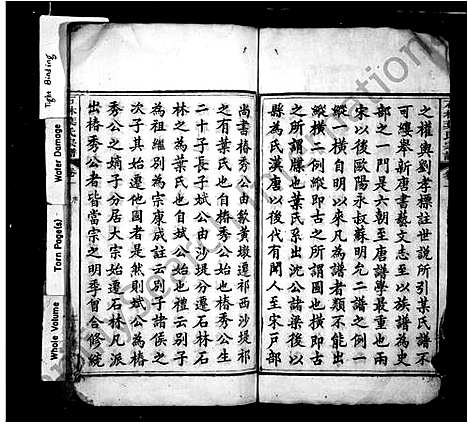 之權輿劉孝標註世說所引某氏譜不
可縷舉新唐書藝文志至以族譜為史
部之一門是六朝至唐譜學最重也兩
宋以後歐陽永叔蘇明允二譜之例一
縱一橫自明以來凡為譜者類不能出
縱橫二例縱即古之所謂圖也橫即古
之所謂牒也葉氏系出沈公諸梁後以
縣為氏漢唐以後代有聞人至宋戶部
尚書椿秀公由歙黃墩遷祁西沙堤祁
之有葉氏也自椿秀公始也椿秀公生
二十子長子斌公由沙堤分遷石林石
林之為葉氏也自斌公始也禮云別子
為祖繼別為宗康成註云別子諸侯之
次子其始遷他國者是然則斌公為椿
秀公之嫡子分居大宗始遷石林凡派
出椿秀公者皆當宗之明季曾合修統
Tight Binding
Water Damage
Torn Page(s)
Whole Volume